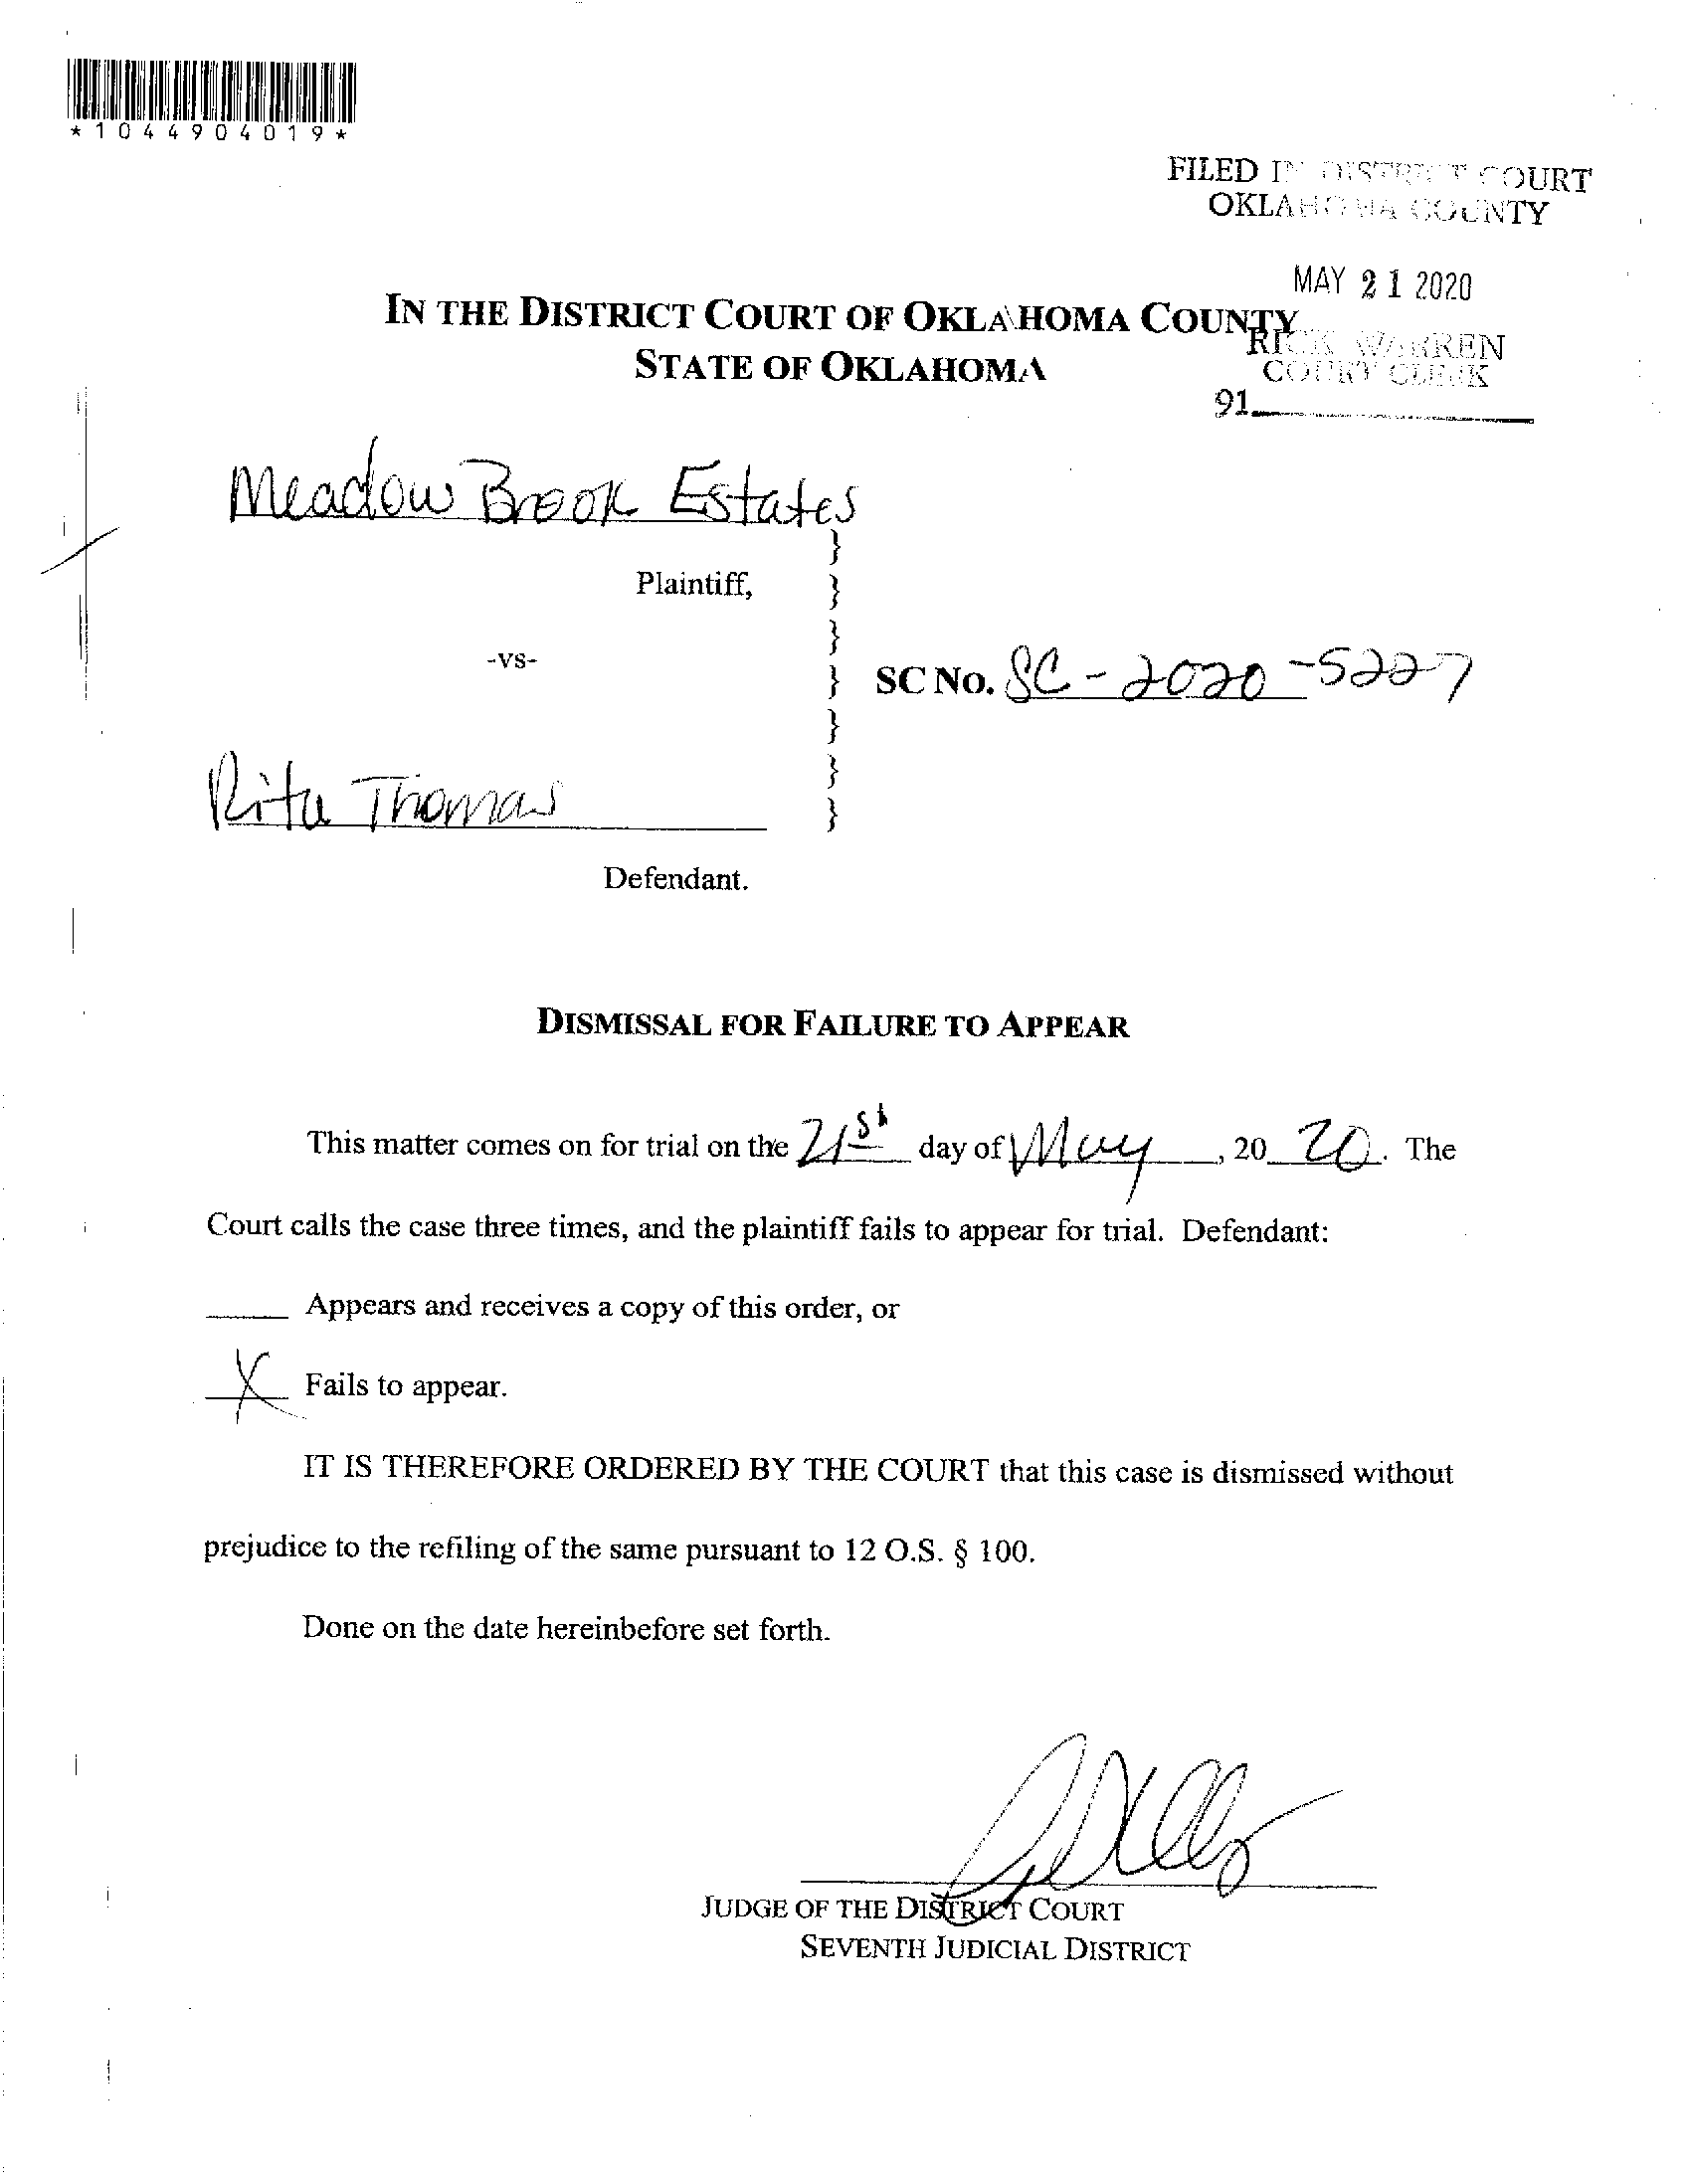 *1044904019*
FILED IN DISTRICT COURT
OKLAHOMA COUNTY
MAY 21 2020
IN THE DISTRICT COURT OF OKLAHOMA COUNTY
RICK WARREN
STATE OF OKLAHOMA
COURT CLERK
91
Meadow Brook Estates
}
Plaintiff, }
}
-vs-
} SC NO. SC-2020-5227
}
}
Rita Thomas }
Defendant.
DISMISSAL FOR FAILURE TO APPEAR
This matter comes on for trial on the 21st day of May, 20 20. The
Court calls the case three times, and the plaintiff fails to appear for trial. Defendant:
____ Appears and receives a copy of this order, or
X Fails to appear.
IT IS THEREFORE ORDERED BY THE COURT that this case is dismissed without
prejudice to the refiling of the same pursuant to 12 O.S. § 100.
Done on the date hereinbefore set forth.
JUDGE OF THE DISTRICT COURT
SEVENTH JUDICIAL DISTRICT